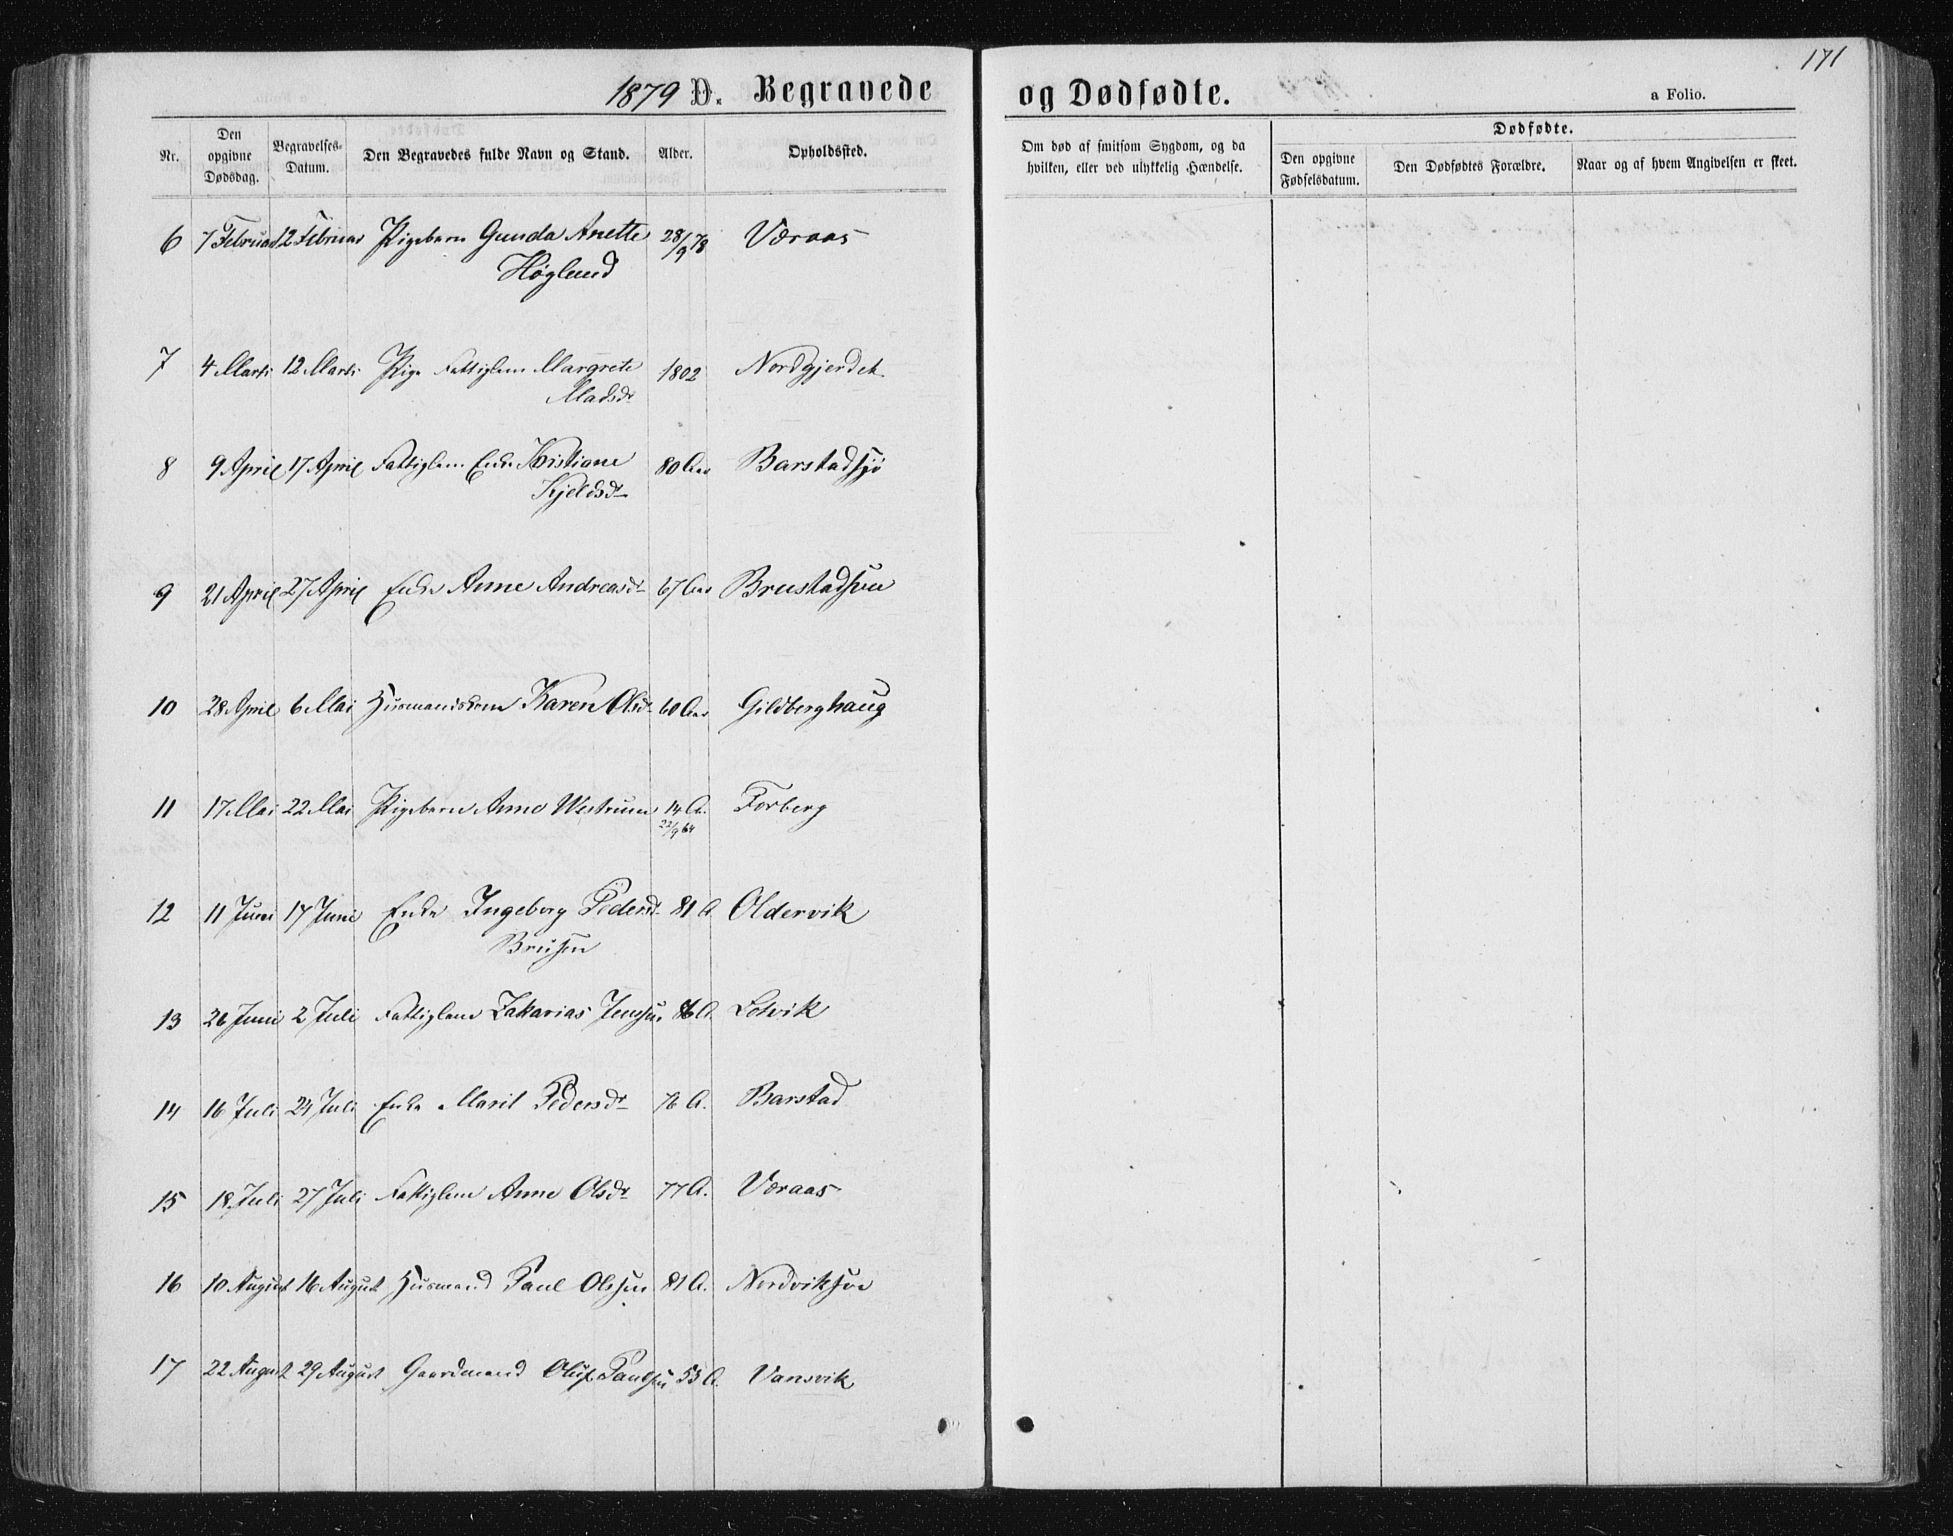 171
1879 D. Begravede og Dødfødte.
a Folio.
Nr. Den opgivne Dødsdag. Begravelses-Datum. Den Begravedes fulde Navn og Stand. Alder. Opholdssted. Om død af smitsom Sygdom, og da hvilken, eller ved ulykkelig Hændelse. Dødfødte. Den opgivne Fødselsdatum. Den Dødfødtes Forældre. Naar og af hvem Angivelsen er skeet.
6 7 Februar 12 Februar Pigebarn Gunda Anette 28/9 78 Væraas
Høglund
7 4 Marts 12 Marts Pige Fattiglem Margrete 1802 Nordgjerdet
Madsdr
8 9 April 17 April Fattiglem Enke Kristiane 80 Aar Barstadsjø
Kjeldsdr
9 21 April 27 April Enke Anne Andreasdr 67 Aar Brustadsvee
10 28 April 6 Mai Husmandskone Karen Olsdr 60 Aar Gildberghaug
11 17 Mai 22 Mai Pigebarn Anne Westrum 14 A. Forberg
22/9 64
12 11 Juni 17 Juni Enke Ingeborg Pedersdr 81 A. Oldervik
Brusen
13 26 Juni 2 Juli Fattiglem Zakarias Jensen 86 A. Lotvik
14 16 Juli 24 Juli Enke Marit Pedersdr 76 A. Barstad
15 18 Juli 27 Juli Fattiglem Anne Olsdr 77 A. Væraas
16 10 August 16 August Husmand Paul Olssen 81 A. Nordviksve
17 22 August 29 August Gaardmand Oluf Paulsen 53 A. Vansvik